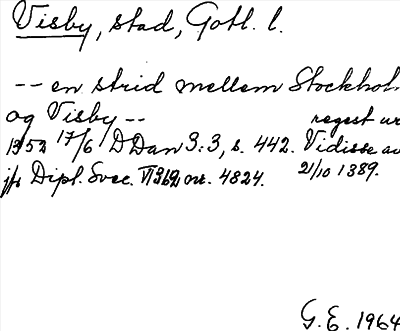 Visby, stad, Gotl. l.
-- en strid mellem Stockhol
og Visby -- regest ur
1352 17/6 DDan 3:3, s. 442. Vidisse av
jfr Dipl. Svec. VI nr. 4824. 21/10 1389.
G. E. 1964